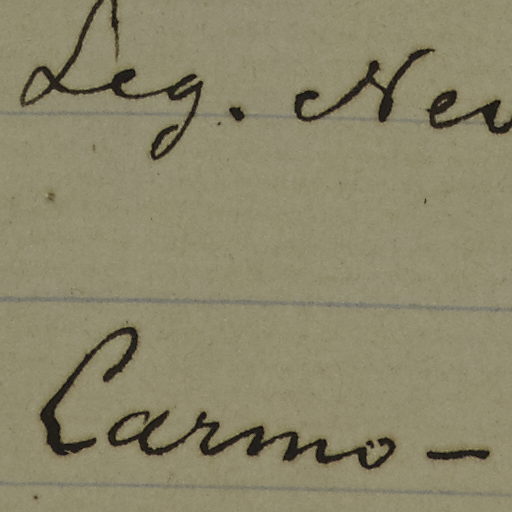 Leg. Nev
Carmo -